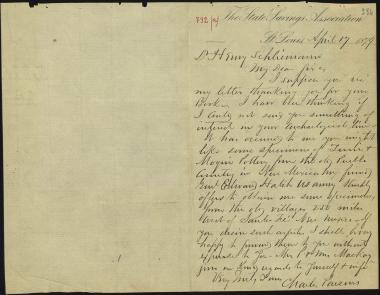 732 (a)
284
The State Savings Association
St Louis April 17, 1879
Dr Henry Schliemann
My Dear Sir
I suppose you rec
my letter thanking you for your
Book. I have been thinking if
I could not send you something of
interest in your Archaeological line
It has occurred to me you might
like some specimens of &
Pottery from the old Pueblo
Country in New Mexico my friend
Genl Edward Hatch US army kindly
offers to obtain me some specimens
from the old villages 250 miles
West of Santa Fe!
you desire such articles I shall be very
happy to you without
expense to you Mrs P & Mrs Mackay
join in kind regards to yourself & wife
Very truly I am
Charles Parsons